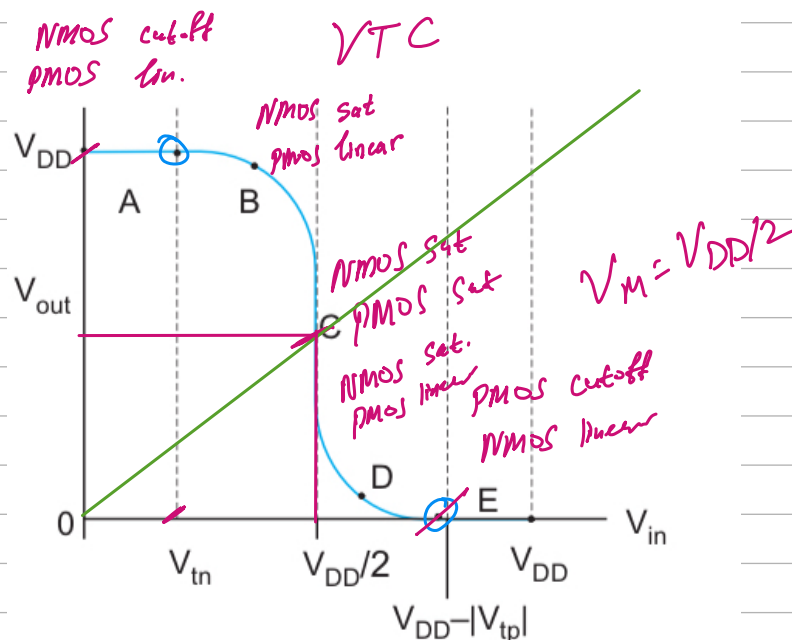 NMOS cutoff
PMOS lin.
VTC
NMOS sat
PMOS linear
V_DD
A
B
V_out
NMOS sat
PMOS sat
C
V_M = V_DD/2
NMOS sat.
PMOS linear
PMOS cutoff
NMOS linear
D
E
0
V_in
V_tn
V_DD/2
V_DD
V_DD–|V_tp|